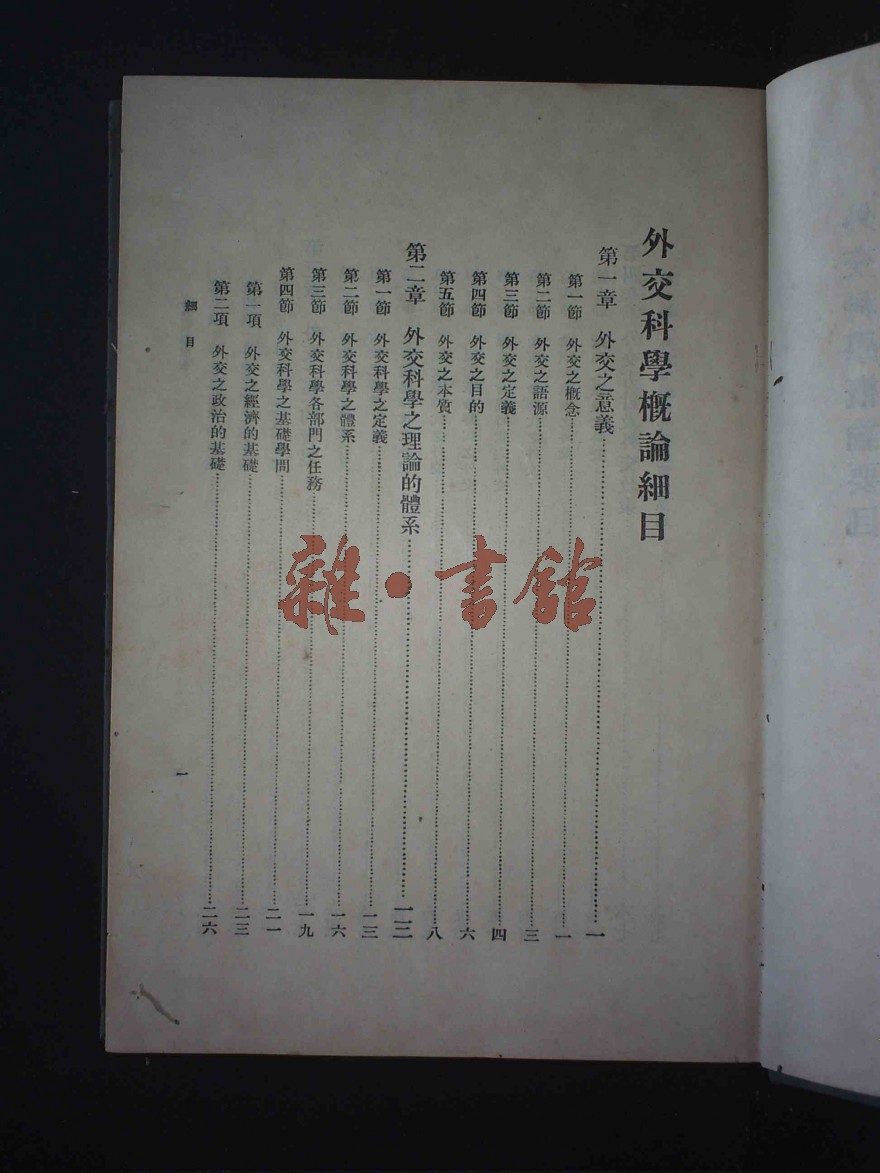 外交科學概論細目
第一章 外交之意義……一
第一節 外交之概念……一
第二節 外交之語源……三
第三節 外交之定義……四
第四節 外交之目的……六
第五節 外交之本質……八
第二章 外交科學之理論的體系……一三
第一節 外交科學之定義……一三
第二節 外交科學之體系……一六
第三節 外交科學各部門之任務……一九
第四節 外交科學之基礎學問……二一
第一項 外交之經濟的基礎……二三
第二項 外交之政治的基礎……二六
細目
一
雜·書館